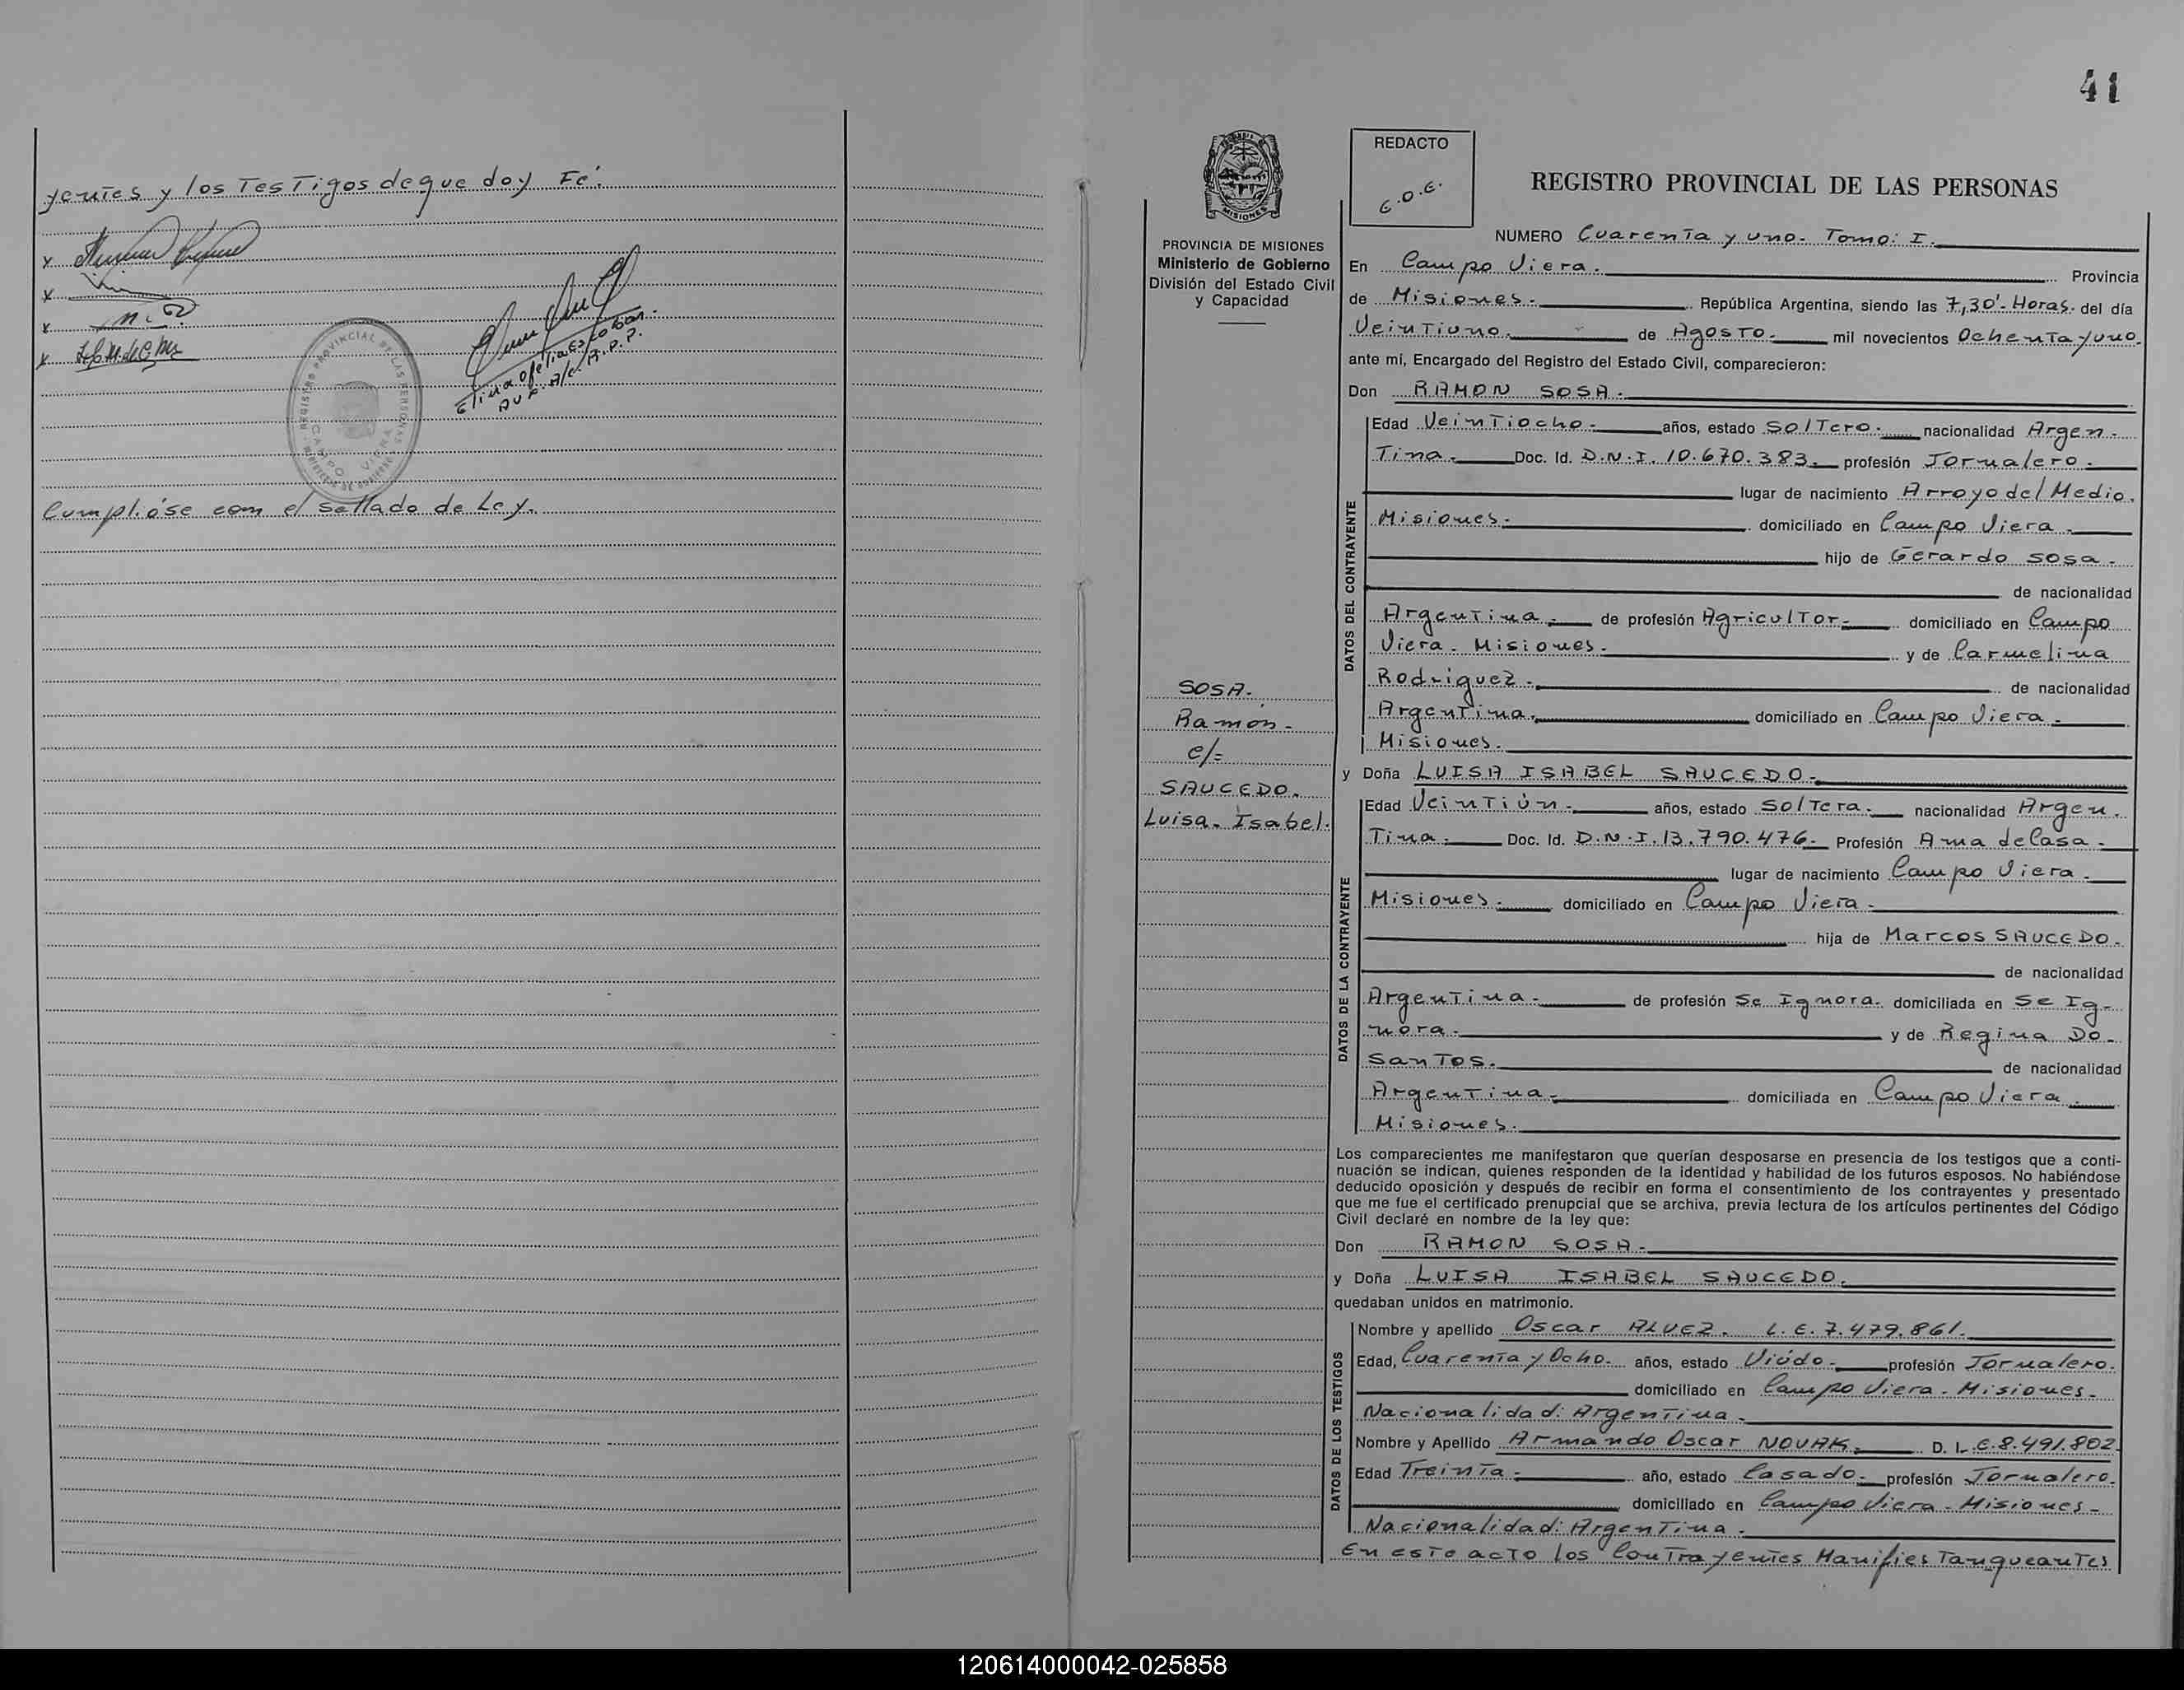 yentes y los Testigos de que doy Fé.
Elina Ofelia Escobar.
Aux. A/c. R.P.P.
REGISTRO PROVINCIAL DE LAS PERSONAS
CAMPO VIERA
Cumplióse con el sellado de Ley.
41
REDACTO
E.O.E.
REGISTRO PROVINCIAL DE LAS PERSONAS
MISIONES
PROVINCIA DE MISIONES
Ministerio de Gobierno
División del Estado Civil
y Capacidad
SOSA.
Ramón-
c/-
SAUCEDO.
Luisa-Isabel.
NUMERO Cuarenta y uno- Tomo: I.
En Campo Viera. Provincia
de Misiones- República Argentina, siendo las 7,30'-Horas- del día
Veintiuno. de Agosto- mil novecientos Ochenta y uno-
ante mi, Encargado del Registro del Estado Civil, comparecieron:
Don RAMON SOSA.
DATOS DEL CONTRAYENTE
Edad Veintiocho- años, estado Soltero- nacionalidad Argen-
Tina- Doc. Id. D.N.I. 10.670.383- profesión Jornalero-
lugar de nacimiento Arroyo del Medio.
Misiones- domiciliado en Campo Viera-
hijo de Gerardo Sosa-
de nacionalidad
Argentina- de profesión Agricultor- domiciliado en Campo
Viera- Misiones- y de Carmelina
Rodriguez- de nacionalidad
Argentina- domiciliado en Campo Viera-
Misiones.
y Doña LUISA ISABEL SAUCEDO-
DATOS DE LA CONTRAYENTE
Edad Veintiún- años, estado Soltera- nacionalidad Argen-
Tina- Doc. Id. D.N.I. 13.790.476- Profesión Ama de Casa-
lugar de nacimiento Campo Viera-
Misiones- domiciliado en Campo Viera-
hija de Marcos SAUCEDO-
de nacionalidad
Argentina- de profesión Se Ignora- domiciliada en Se Ig-
nora- y de Regina Do-
Santos. de nacionalidad
Argentina- domiciliada en Campo Viera
Misiones.
Los comparecientes me manifestaron que querían desposarse en presencia de los testigos que a conti-
nuación se indican, quienes responden de la identidad y habilidad de los futuros esposos. No habiéndose
deducido oposición y después de recibir en forma el consentimiento de los contrayentes y presentado
que me fue el certificado prenupcial que se archiva, previa lectura de los artículos pertinentes del Código
Civil declaré en nombre de la ley que:
Don RAMON SOSA-
y Doña LUISA ISABEL SAUCEDO.
quedaban unidos en matrimonio.
DATOS DE LOS TESTIGOS
Nombre y apellido Oscar ALVEZ. L.E. 7.479.861.
Edad, Cuarenta y Ocho- años, estado Viúdo- profesión Jornalero.
domiciliado en Campo Viera- Misiones-
Nacionalidad: Argentina-
Nombre y Apellido Armando Oscar NOVAK- D. I. L.E. 8.491.802
Edad Treinta- año, estado Casado- profesión Jornalero.
domiciliado en Campo Viera- Misiones-
Nacionalidad: Argentina-
En este acto los Contrayentes Manifiestan que antes
120614000042-025858